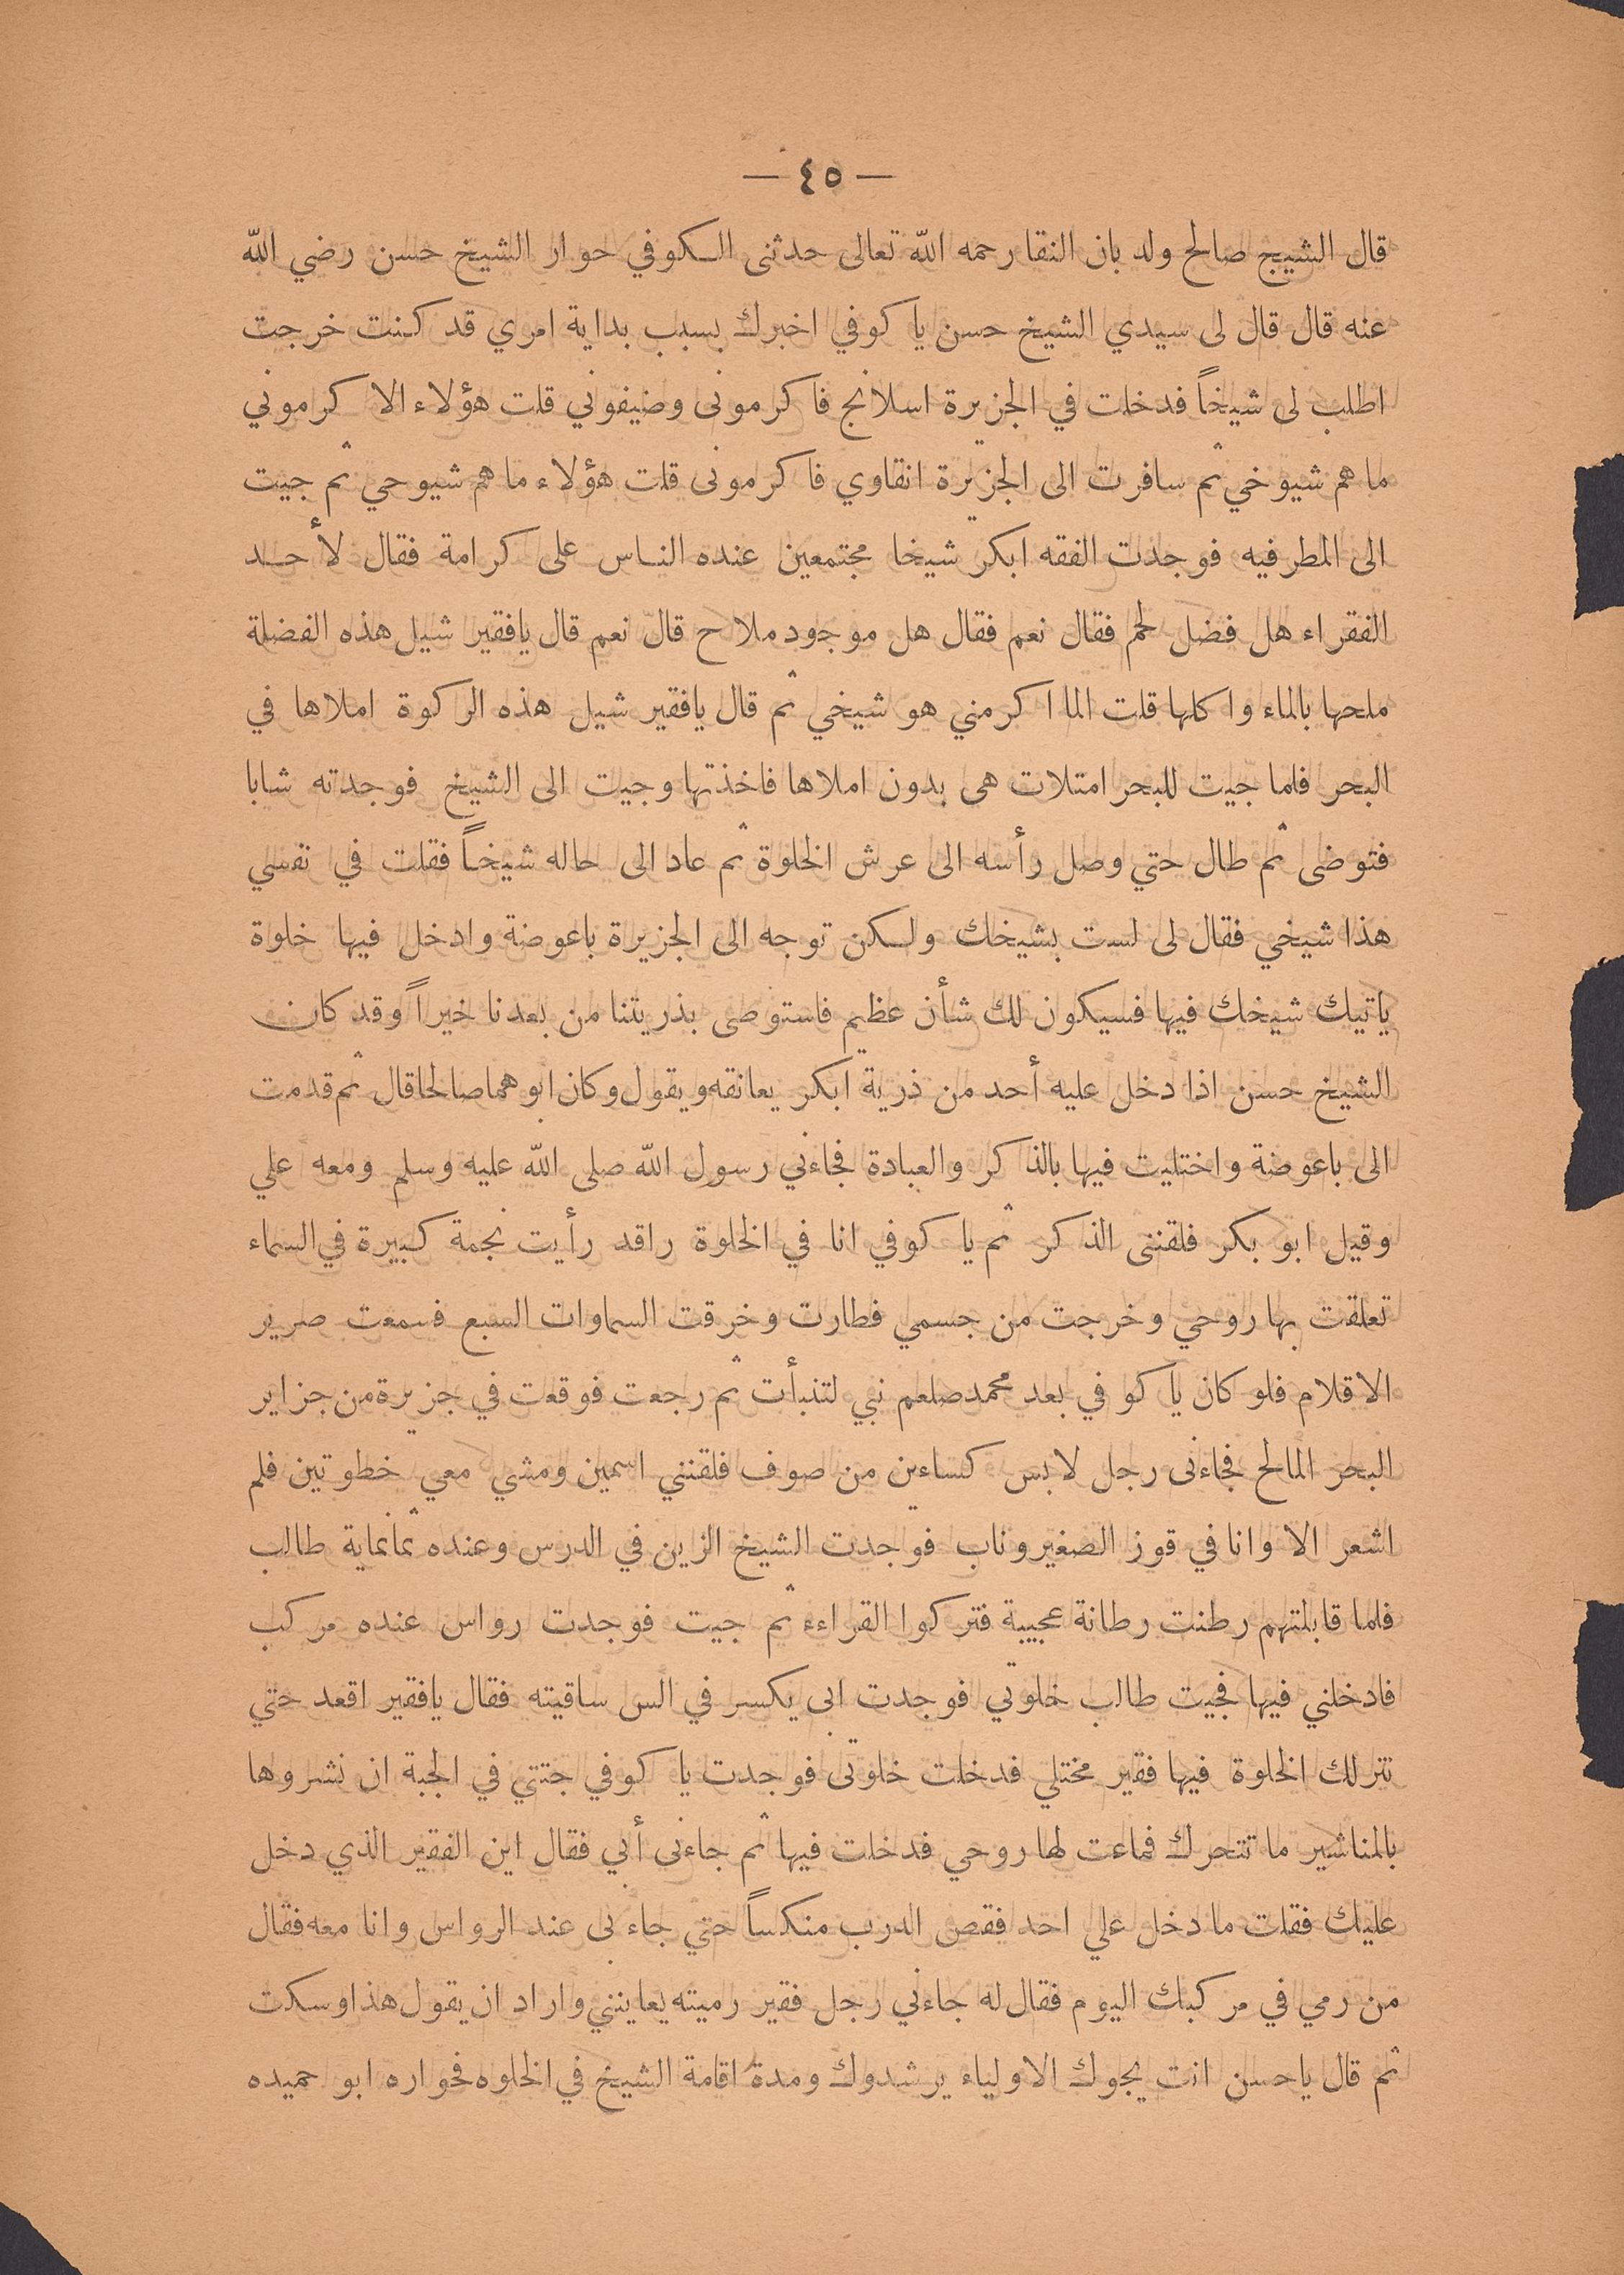 — ٤٥ —
قال الشيج صالح ولد بان النقا رحمه الله تعالى حدثنى الكوفي حوار الشيخ حسن رضي الله
عنه قال قال لى سيدي الشيخ حسن يا كوفي اخبرك بسبب بداية امري قد كنت خرجت
اطلب لى شيخاً فدخلت في الجزيرة اسلانج فاكرمونى وضيفوني قلت هؤلاء الا كرموني
ما هم شيوخي ثم سافرت الى الجزيرة انقاوي فاكرمونى قلت هؤلاء ما هم شيوحي ثم جيت
الى المطرفيه فوجدت الفقه ابكر شيخا مجتمعين عنده الناس على كرامة فقال لأحد
الفقراء هل فضل لحم فقال نعم فقال هل موجود ملاح قال نعم قال يافقير شيل هذه الفضلة
ملحها بالماء واكلها قلت الما اكرمني هو شيخي ثم قال يافقير شيل هذه الركوة املاها في
البحر فلما جيت للبحر امتلات هى بدون املاها فاخذتها وجيت الى الشيخ فوجدته شابا
فتوضى ثم طال حتي وصل رأسه الى عرش الخلوة ثم عاد الى حاله شيخاً فقلت في نفسي
هذا شيخي فقال لى لست بشيخك ولكن توجه الى الجزيرة باعوضة وادخل فيها خلوة
ياتيك شيخك فيها فسيكون لك شأن عظيم فاستوصى بذريتنا من بعدنا خيراً وقد كان
الشيخ حسن اذا دخل عليه أحد من ذرية ابكر يعانقه ويقول وكان ابوهما صالحا قال ثم قدمت
الى باعوضة واختليت فيها بالذاكر والعبادة فجاءني رسول الله صلى الله عليه وسلم ومعه علي
وقيل ابو بكر فلقننى الذكر ثم يا كوفي انا في الخلوة راقد رأيت نجمة كبيرة في السماء
تعلقت بها روحي وخرجت من جسمي فطارت وخرقت السماوات السبع فسمعت صرير
الاقلام فلو كان يا كوفي بعد محمد صلعم نبي لتنبأت ثم رجعت فوقعت في جزيرة من جزاير
البحر المالح فجاءنى رجل لابس كساءين من صوف فلقنني اسمين ومشي معي خطوتين فلم
اشعر الا وانا في قوز الصغيروناب فوجدت الشيخ الزين في الدرس وعنده ثمانماية طالب
فلما قابلتهم رطنت رطانة عجيبة فتركوا القراءء ثم جيت فوجدت رواس عنده مركب
فادخلني فيها فجيت طالب خلوتي فوجدت ابى يكسر في الس ساقيته فقال يافقير اقعد حتي
تترلك الخلوة فيها فقير مختلي فدخلت خلوتى فوجدت يا كوفي جتتي في الجبة ان نشروها
بالمناشير ما تتحرك فماعت لها روحي فدخلت فيها ثم جاءنى أبي فقال اين الفقير الذي دخل
عليك فقلت ما دخل علي احد فقص الدرب منكساً حتي جاءنى عند الرواس وانا معه فقال
من رمي في مركبك اليوم فقال له جاءني رجل فقير رميته يعاينني واراد ان يقول هذا وسكت
ثم قال ياحسن انت يجوك الاولياء يرشدوك ومدة اقامة الشيخ في الخلوه فحواره ابو حميده